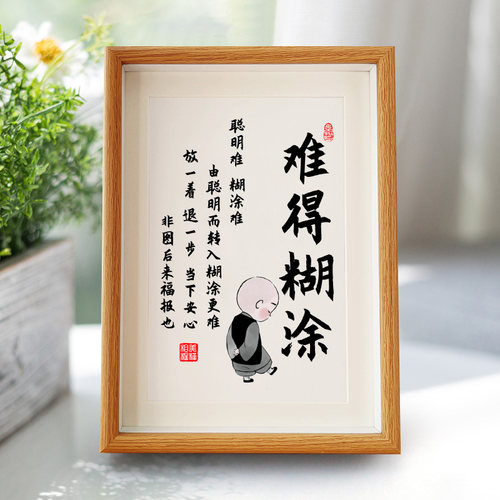 难得糊涂
聪明难 糊涂难
由聪明而转入糊涂更难
放一着 退一步 当下安心
非图后来福报也